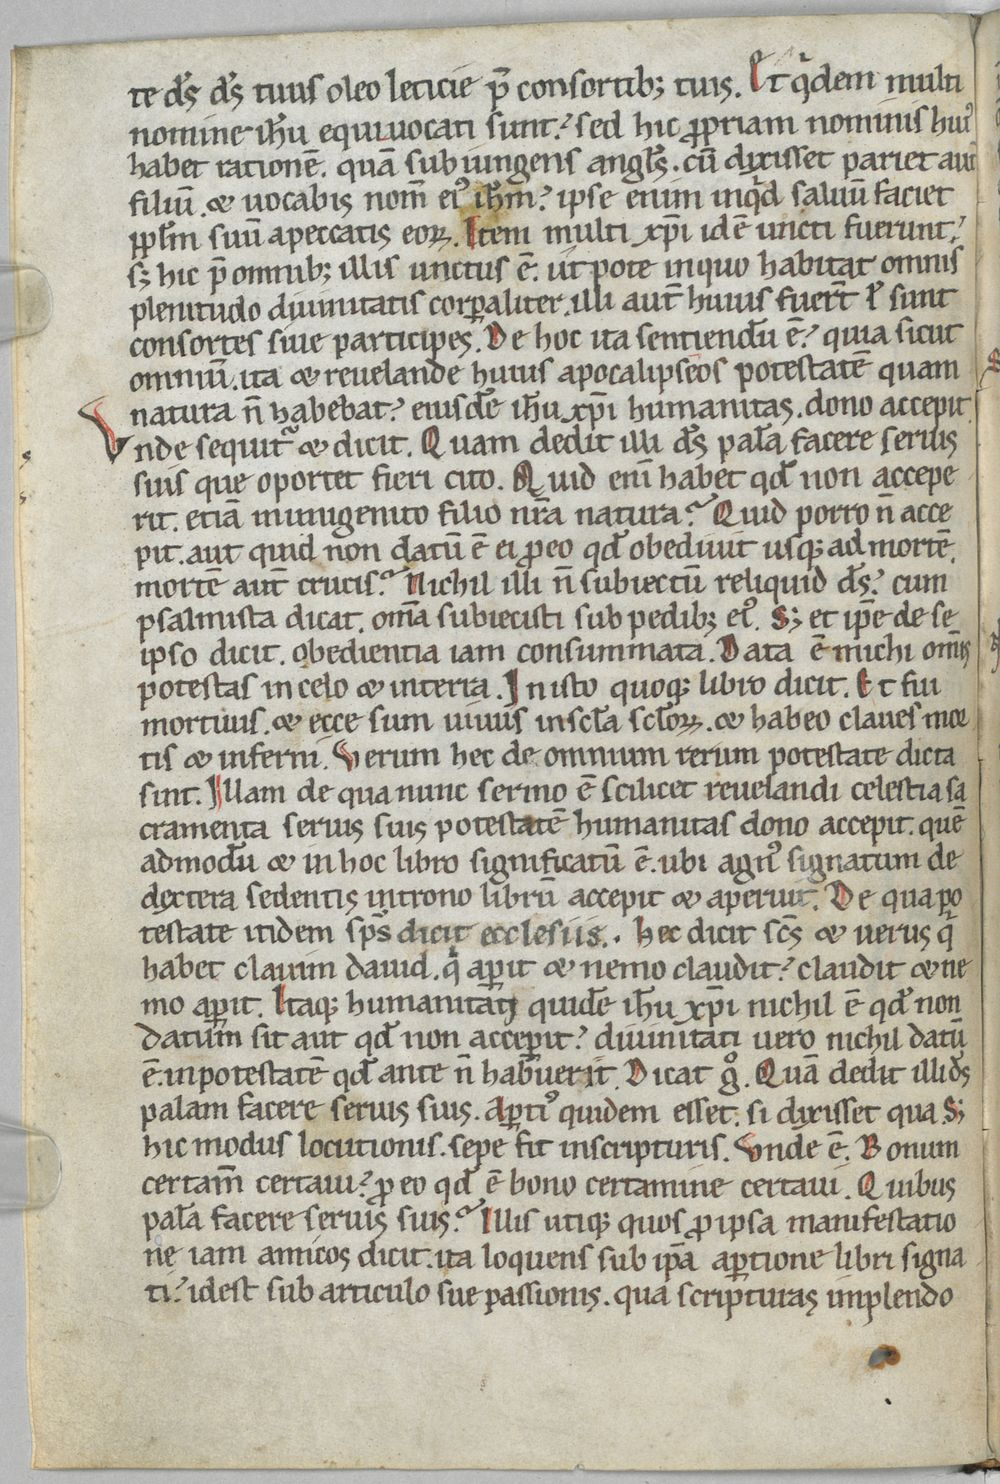 te ds̄ ds̄ tuus oleo leticie p̄ consortib; tuis. Et qͥdem multi
nomine ih̄u equiuocati sunt. sed hic ꝓpriam nominis huiꝰ
habet rationē. quā subiungens angl̄s. cū dixisset pariet aut̄
filiū. ⁊ uocabis nom̄ eiꝰ ih̄m. ipse enim inqͥd saluū faciet
ppl̄m suū a peccatis eoꝝ. Item multi xp̄i id ē uncti fuerunt.
s; hic p̄ omnib; illis unctus ē. ut pote in quo habitat omnis
plenitudo diuinitatis corꝑaliter. illi aut̄ huius fuer̄t ł sunt
consortes siue participes. De hoc ita sentiendū ē. quia sicut
omniū. ita ⁊ reuelande huius apocalipseos potestatē quam
natura n̄ habebat. eiusdē ih̄u xp̄i humanitas. dono accepit.
Vnde sequit᷑ ⁊ dicit. Quam dedit illi ds̄ pala᷒ facere seruis
suis que oportet fieri cito. Quid eni᷒ habet qd̄ non accepe
rit. etiā in unigenito filio nr̄a natura? Quid porro n̄ acce
pit. aut quid non datū ē ei ꝓ eo qd̄ obediuit usq; ad mortē.
mortē aut̄ crucis? Nichil illi n̄ subiectū reliquid ds̄. cum
psalmista dicat. om̄a subiecisti sub pedib; eiꝰ. S; et ip̄e de se
ipso dicit. obedientia iam consummata. Data ē michi om̄is
potestas in celo ⁊ in terra. In isto quoq; libro dicit. Et fui
mortuus. ⁊ ecce sum uiuus in scl̄a scl̄oꝝ. ⁊ habeo claues mor
tis ⁊ inferni. Verum hec de omnium rerum potestate dicta
sint. Illam de qua nunc sermo ē scilicet reuelandi celestia sa
cramenta seruis suis potestatē humanitas dono accepit. quē
admodū ⁊ in hoc libro significatū ē. ubi agnꝰ signatum de
dextera sedentis in trono librū accepit ⁊ aperuit. De qua po
testate itidem sp̄s dicit ecclesiis. hec dicit sc̄s ⁊ uerus qͥ
habet clauim dauid. qͥ aꝑit ⁊ nemo claudit. claudit ⁊ ne
mo aꝑit. Itaq; humanitati quidē ih̄u xp̄i nichil ē qd̄ non
datum sit aut qd̄ non acceꝑit. diuinitati uero nichil datū
ē. in potestatē qd̄ ante n̄ habuerit. Dicat gͦ. Quā dedit illi ds̄
palam facere seruis suis. Aꝑtiꝰ quidem esset. si dixisset qua. S;
hic modus locutionis. sepe fit in scripturis. Vnde ē. Bonum
certam̄ certaui. ꝓ eo qd̄ ē bono certamine certaui. Quibus
pala᷒ facere seruis suis? Illis utiq; quos ꝓ ipsa manifestatio
ne iam amicos dicit. ita loquens sub ip̄a aꝑtione libri signa
ti. idest sub articulo sue passionis. qua scripturas implendo